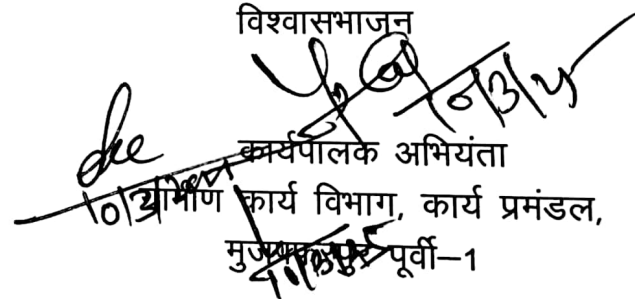 विश्वासभाजन
10/3/25
कार्यपालक अभियंता
ग्रामीण कार्य विभाग, कार्य प्रमंडल,
मुजफ्फरपुर पूर्वी–1